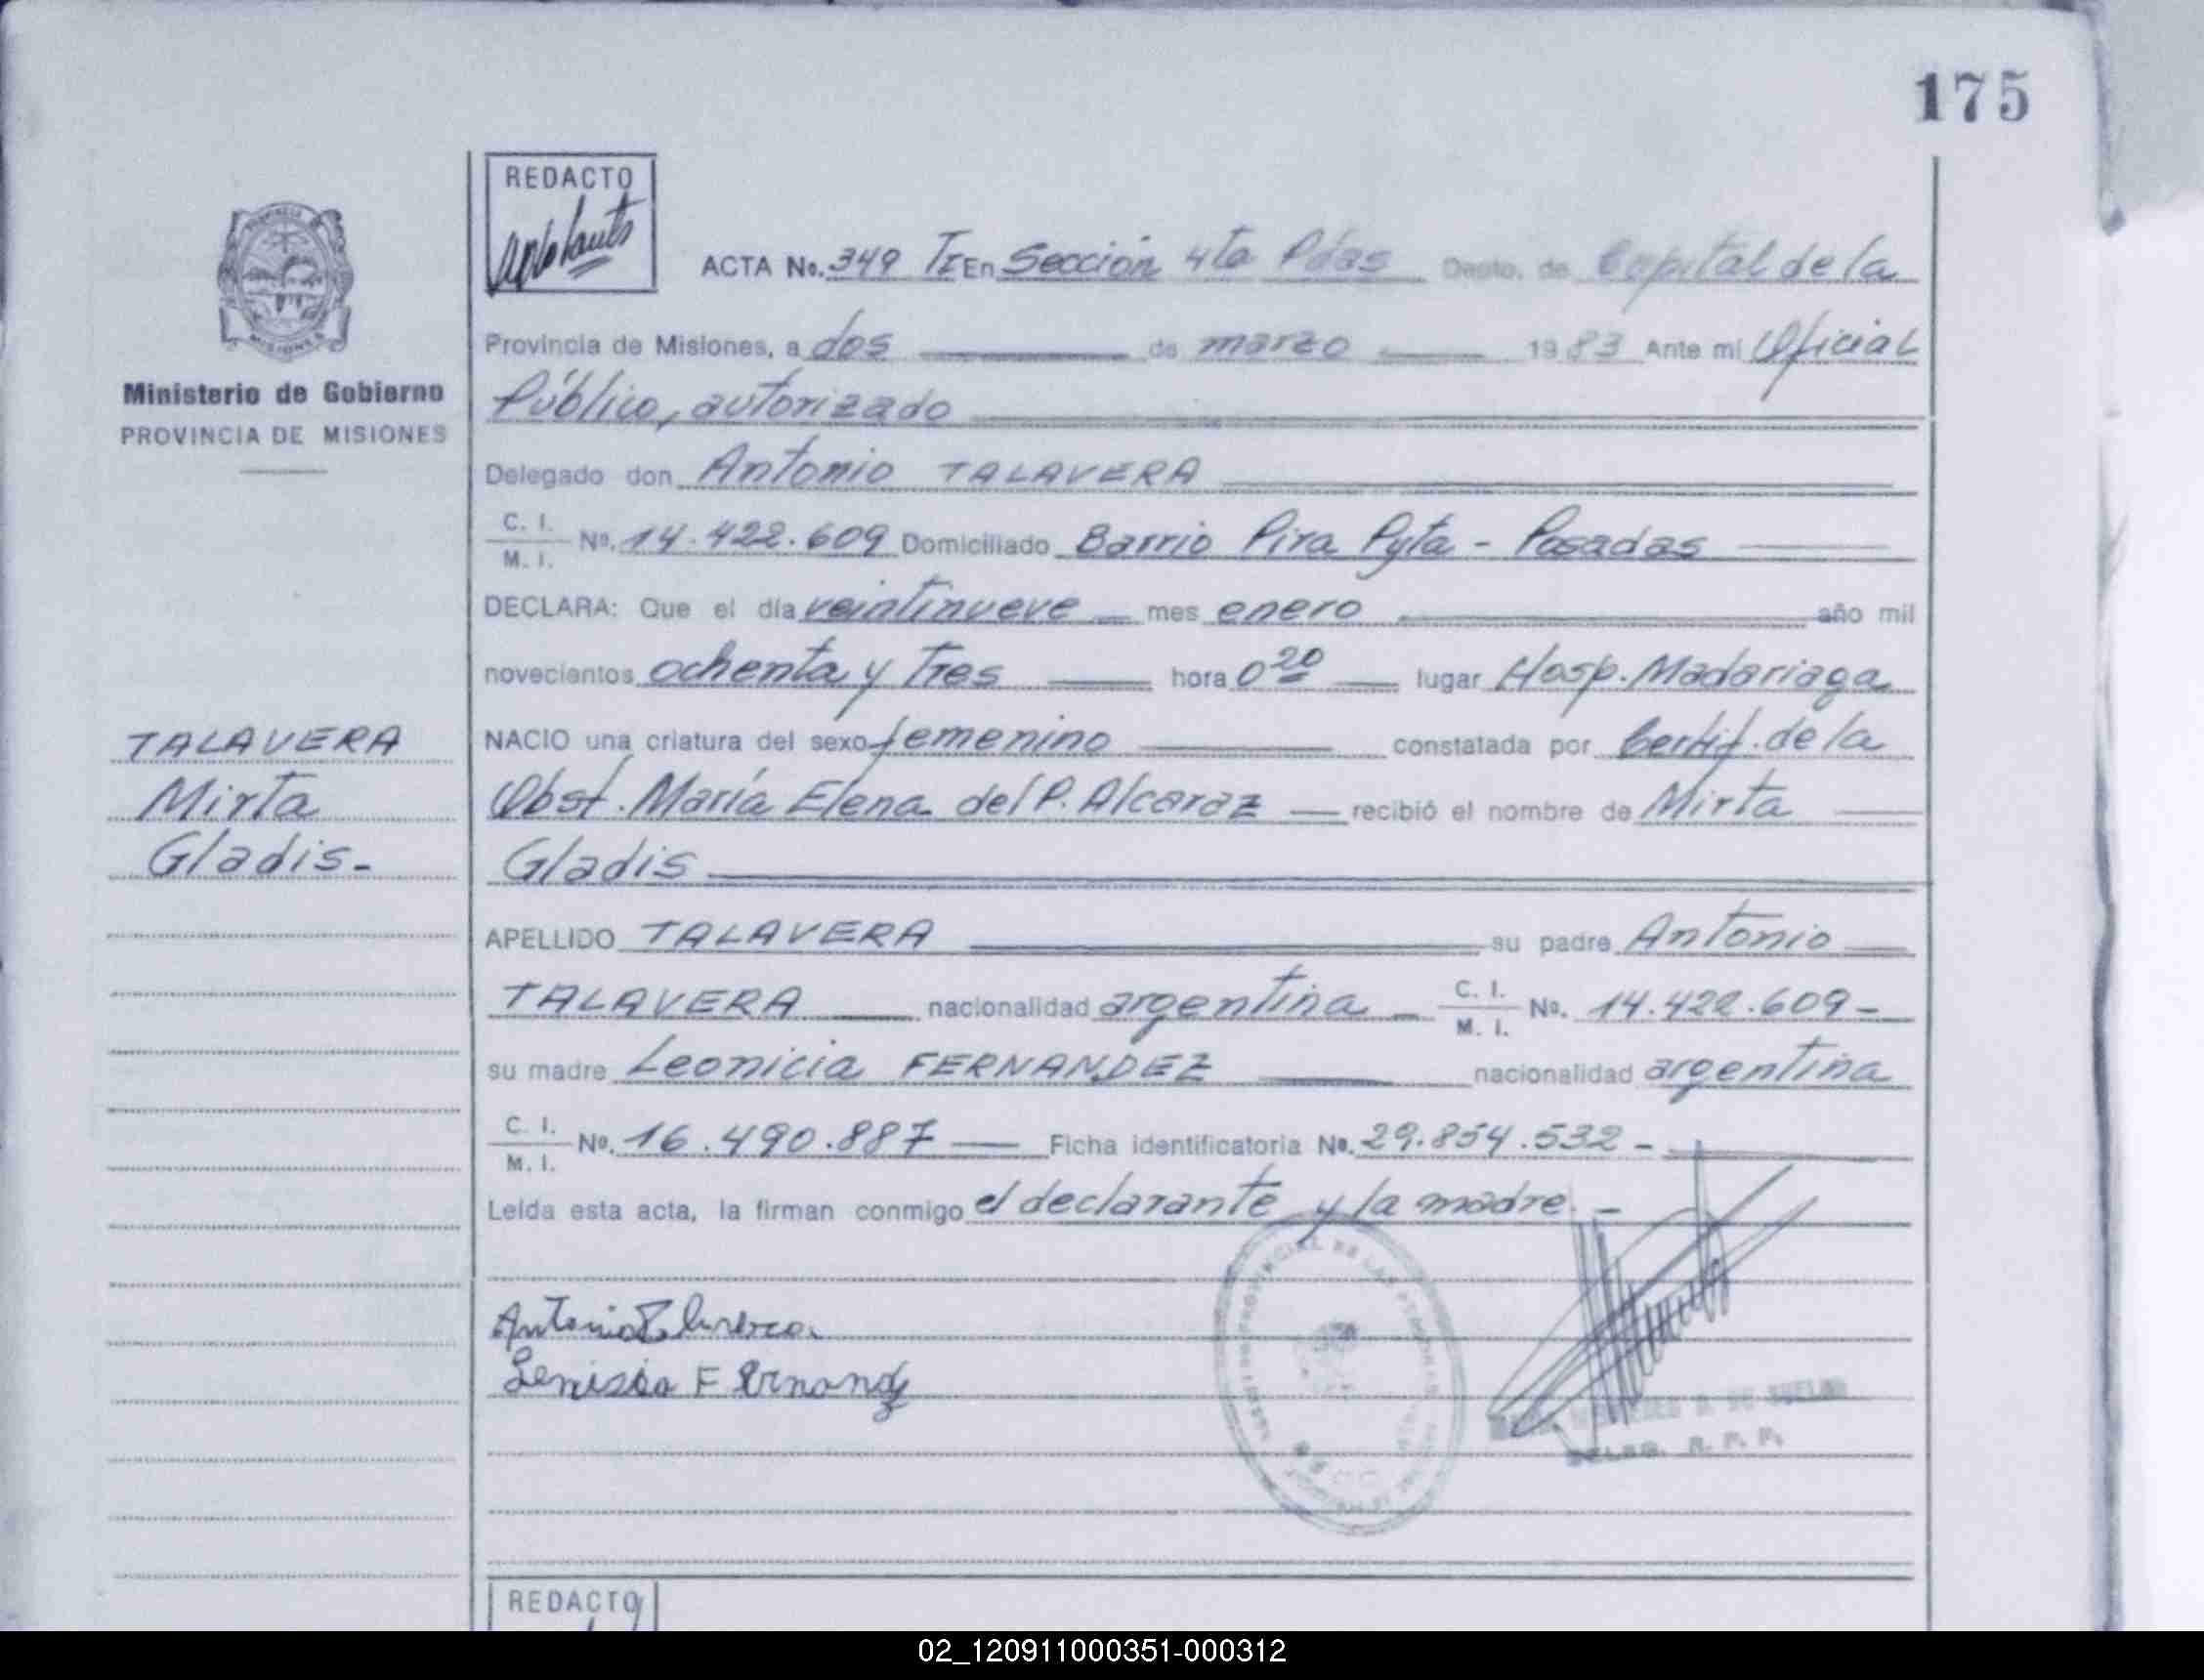 175
REDACTO
ACTA No. 349 TI En Sección 4ta Pdas Depto. de Capital de la
Provincia de Misiones, a dos de marzo 1983 Ante mi Oficial
Público, autorizado
Ministerio de Gobierno
PROVINCIA DE MISIONES
Delegado don Antonio TALAVERA
C. I.
M. I. Nº. 14.422.609 Domiciliado Barrio Pira Pyta - Posadas
DECLARA: Que el día veintinueve mes enero año mil
novecientos ochenta y Tres hora 0 20 lugar Hosp. Madariaga
NACIO una criatura del sexo femenino constatada por Certif. de la
Obst. María Elena del P. Alcaraz recibió el nombre de Mirta
Gladis
TALAVERA
Mirta
Gladis-
APELLIDO TALAVERA su padre Antonio
TALAVERA nacionalidad argentina C. I.
M. I. Nº. 14.422.609-
su madre Leonicia FERNANDEZ nacionalidad argentina
C. I.
M. I. Nº. 16.490.887 Ficha identificatoria No. 29.854.532-
Leida esta acta, la firman conmigo el declarante y la madre.-
Antonio Talavera
F Ernandez
DELEG. R. P. P.
REDACTO
02_120911000351-000312